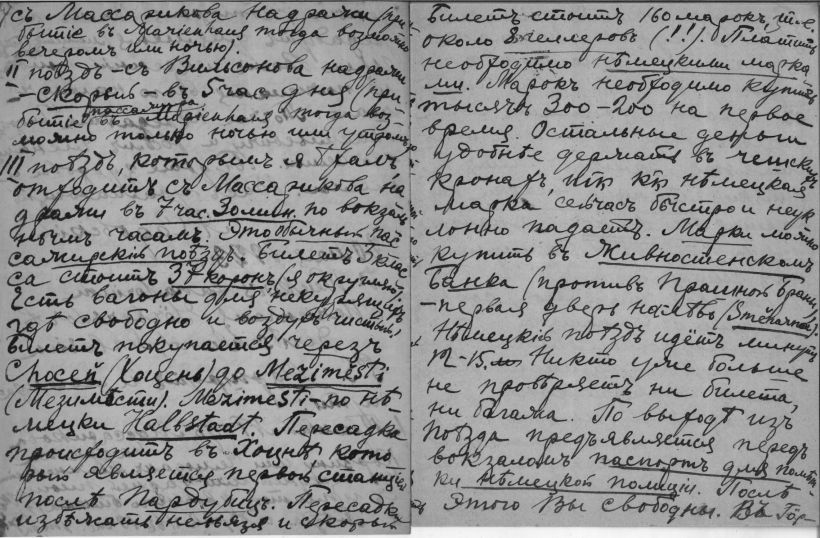 съ Массарикова надражи (при-
бытіе въ Mařienhaus тогда возможно
вечеромъ или ночью).
II поѣздъ – съ Вильсонова надражи
– скорый – въ 5 час. дня (при
пассажира
бытіе въ Mařienhaus тогда воз-
можно только ночью или утромъ
III поѣздъ, которымъ я ѣхалъ,
отходитъ съ Массарикова на
дражи въ 7 час. 30 мин. по вокзаль
нымъ часамъ. Это обычный пас
сажирскій поѣздъ. Билетъ 3 клас
са стоитъ 37 коронъ (я округляю).
Есть вагоны для некурящихъ,
гдѣ свободно и воздухъ чистый,
Билетъ покупается черезъ
Choceň (Хоцень) до Meziměsti
(Мезимѣсти). Meziměsti – по нѣ-
мецки Halbstadt. Пересадка
происходитъ въ Хоцнѣ кото
рый является первой станціей
послѣ Пардубицъ. Пересадки
избѣжать нельзя и скорый
Билетъ стоитъ 160 марокъ, т.е.
около 8 геллеровъ (!!). Платить
необходимо нѣмецкими марка
ми. Марокъ необходимо купить
тысячъ 300–200 на первое
время. Остальные деньги
удобнѣе держать въ чешскихъ
кронахъ, нѣмецкая
марка сейчасъ быстро и неук
лонно падаетъ. Марки можно
купить въ Живностенскомъ
банкѣ (противъ Прашной браны,
– первая дверь налѣво
Нѣмецкій поѣздъ идетъ минутъ
12–15. Никто уже больше
не провѣряетъ ни билета,
ни багажа. По выходѣ изъ
поѣзда предъявляется передъ
вокзаломъ паспортъ для помѣт-
ки нѣмецкой полиціи. Послѣ
этого Вы свободны. Въ Гор-